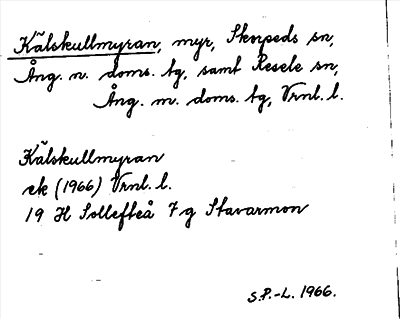 Kälskullmyran, myr, Skorpeds sn,
Ång. n. doms. tg, samt Resele sn,
Ång. m. doms. tg, Vrnl. l.
Kälskullmyran
ek (1966) Vrnl. l.
19 H Sollefteå 7 g Stavarmon
S.P.-L. 1966.